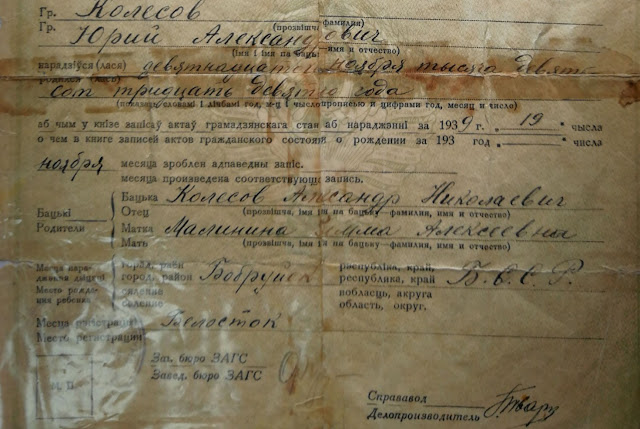 Гр. Колесов
(прозвішча, фамилия)
Гр. Юрий Александрович
(імя і імя па бацьку, имя и отчество)
нарадзіўся (лася) девятнадцатого ноября тысяча девять-
родился (лась)
сот тридцать девятого года
словамі і лічбамі год, число прописью и цифрами год, месяц и число)
аб чым у кнізе запісаў актаў грамадзянскага стану аб нараджэнні за 1939 г. 19 чысла
о чем в книге записей актов гражданского состояния о рождении за 193 год числа
ноября месяца зроблен адпаведны запіс.
месяца произведена соответствующая запись.
Бацькі Бацька Колесов Александр Николаевич
Родители Отец (прозвішча, імя і імя па бацьку—фамилия, имя и отчество)
Матка Малинина Алексеевна
Мать (прозвішча, імя і імя па бацьку—фамилия, имя и отчество)
Месца нараджэння дзіцяці горад, раён Бобруйск рэспубліка, край, Б.С.С.Р.
Место рождения ребенка город, район республика, край
селение вобласць, акруга
селение область, округ.
Месца рэгістрацыі Белосток
Место регистрации
Заг. бюро ЗАГС
М. П. Завед. бюро ЗАГС
Справавод
Делопроизводитель